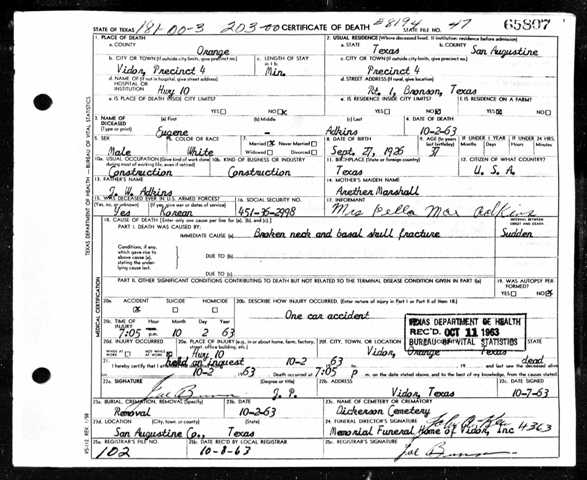 STATE OF TEXAS 181-00-3 203-00 CERTIFICATE OF DEATH #8194 STATE FILE NO. 47 65897
1. PLACE OF DEATH 2. USUAL RESIDENCE (Where deceased lived. If institution: residence before admission)
a. COUNTY Orange a. STATE Texas b. COUNTY San Augustine
b. CITY OR TOWN (If outside city limits, give precinct no.) c. LENGTH OF STAY c. CITY OR TOWN (If outside city limits, give precinct no.)
Vidor, Precinct 4 Min. Precinct 4
d. NAME OF (If not in hospital, give street address) HOSPITAL OR INSTITUTION d. STREET ADDRESS (If rural, give location)
Hwy 10 Rt. 1, Bronson, Texas
e. IS PLACE OF DEATH INSIDE CITY LIMITS? e. IS RESIDENCE INSIDE CITY LIMITS? f. IS RESIDENCE ON A FARM?
YES NO YES NO YES NO
3. NAME OF DECEASED (Type or print) (a) First (b) Middle (c) Last 4. DATE OF DEATH
Eugene - Adkins 10-2-63
5. SEX 6. COLOR OR RACE 7. Married Never Married Widowed Divorced 8. DATE OF BIRTH 9. AGE IF UNDER 1 YEAR IF UNDER 24 HRS.
Male White Sept. 27, 1926 37
10a. USUAL OCCUPATION (Give kind of work done during most of working life, even if retired) 10b. KIND OF BUSINESS OR INDUSTRY 11. BIRTHPLACE (State or foreign country) 12. CITIZEN OF WHAT COUNTRY?
Construction Construction Texas U. S. A.
13. FATHER'S NAME 14. MOTHER'S MAIDEN NAME
J. W. Adkins Arether Marshall
15. WAS DECEASED EVER IN U.S. ARMED FORCES? 16. SOCIAL SECURITY NO. 17. INFORMANT
Yes Korean 451-36-2998 Mrs Bella Mae Adkins
18. CAUSE OF DEATH [Enter only one cause per line for (a), (b), and (c).] INTERVAL BETWEEN ONSET AND DEATH
PART I. DEATH WAS CAUSED BY:
IMMEDIATE CAUSE (a) Broken neck and basal skull fracture Sudden
Conditions, if any, which gave rise to above cause (a), stating the underlying cause last.
DUE TO (b)
DUE TO (c)
PART II. OTHER SIGNIFICANT CONDITIONS CONTRIBUTING TO DEATH BUT NOT RELATED TO THE TERMINAL DISEASE CONDITION GIVEN IN PART I(a) 19. WAS AUTOPSY PERFORMED?
YES NO
20a. ACCIDENT SUICIDE HOMICIDE 20b. DESCRIBE HOW INJURY OCCURRED. (Enter nature of injury in Part I or Part II of item 18.)
One car accident
20c. TIME OF INJURY Hour Month Day Year
7:05 p.m. 10 2 63
TEXAS DEPARTMENT OF HEALTH
REC'D. OCT 11 1963
BUREAU OF VITAL STATISTICS
20d. INJURY OCCURRED 20e. PLACE OF INJURY 20f. CITY, TOWN, OR LOCATION COUNTY STATE
Hwy 10 Vidor, Orange Texas
held an inquest 10-2 63 dead
21. I hereby certify that I attended
10-2 63 Death occurred at 7:05 p.m. on the date stated above, and to the best of my knowledge, from the causes stated.
22a. SIGNATURE (Degree or title) 22b. ADDRESS 22c. DATE SIGNED
J. P. Vidor, Texas 10-7-63
23a. BURIAL, CREMATION, REMOVAL (Specify) 23b. DATE 23c. NAME OF CEMETERY OR CREMATORY
Removal 10-2-63 Dickerson Cemetery
23d. LOCATION (City, town, or county) (State) 24. FUNERAL DIRECTOR'S SIGNATURE
San Augustine Co., Texas Memorial Funeral Home of Vidor, Inc 4363
25a. REGISTRAR'S FILE NO. 25b. DATE REC'D BY LOCAL REGISTRAR 25c. REGISTRAR'S SIGNATURE
102 10-8-63
TEXAS DEPARTMENT OF HEALTH — BUREAU OF VITAL STATISTICS
MEDICAL CERTIFICATION